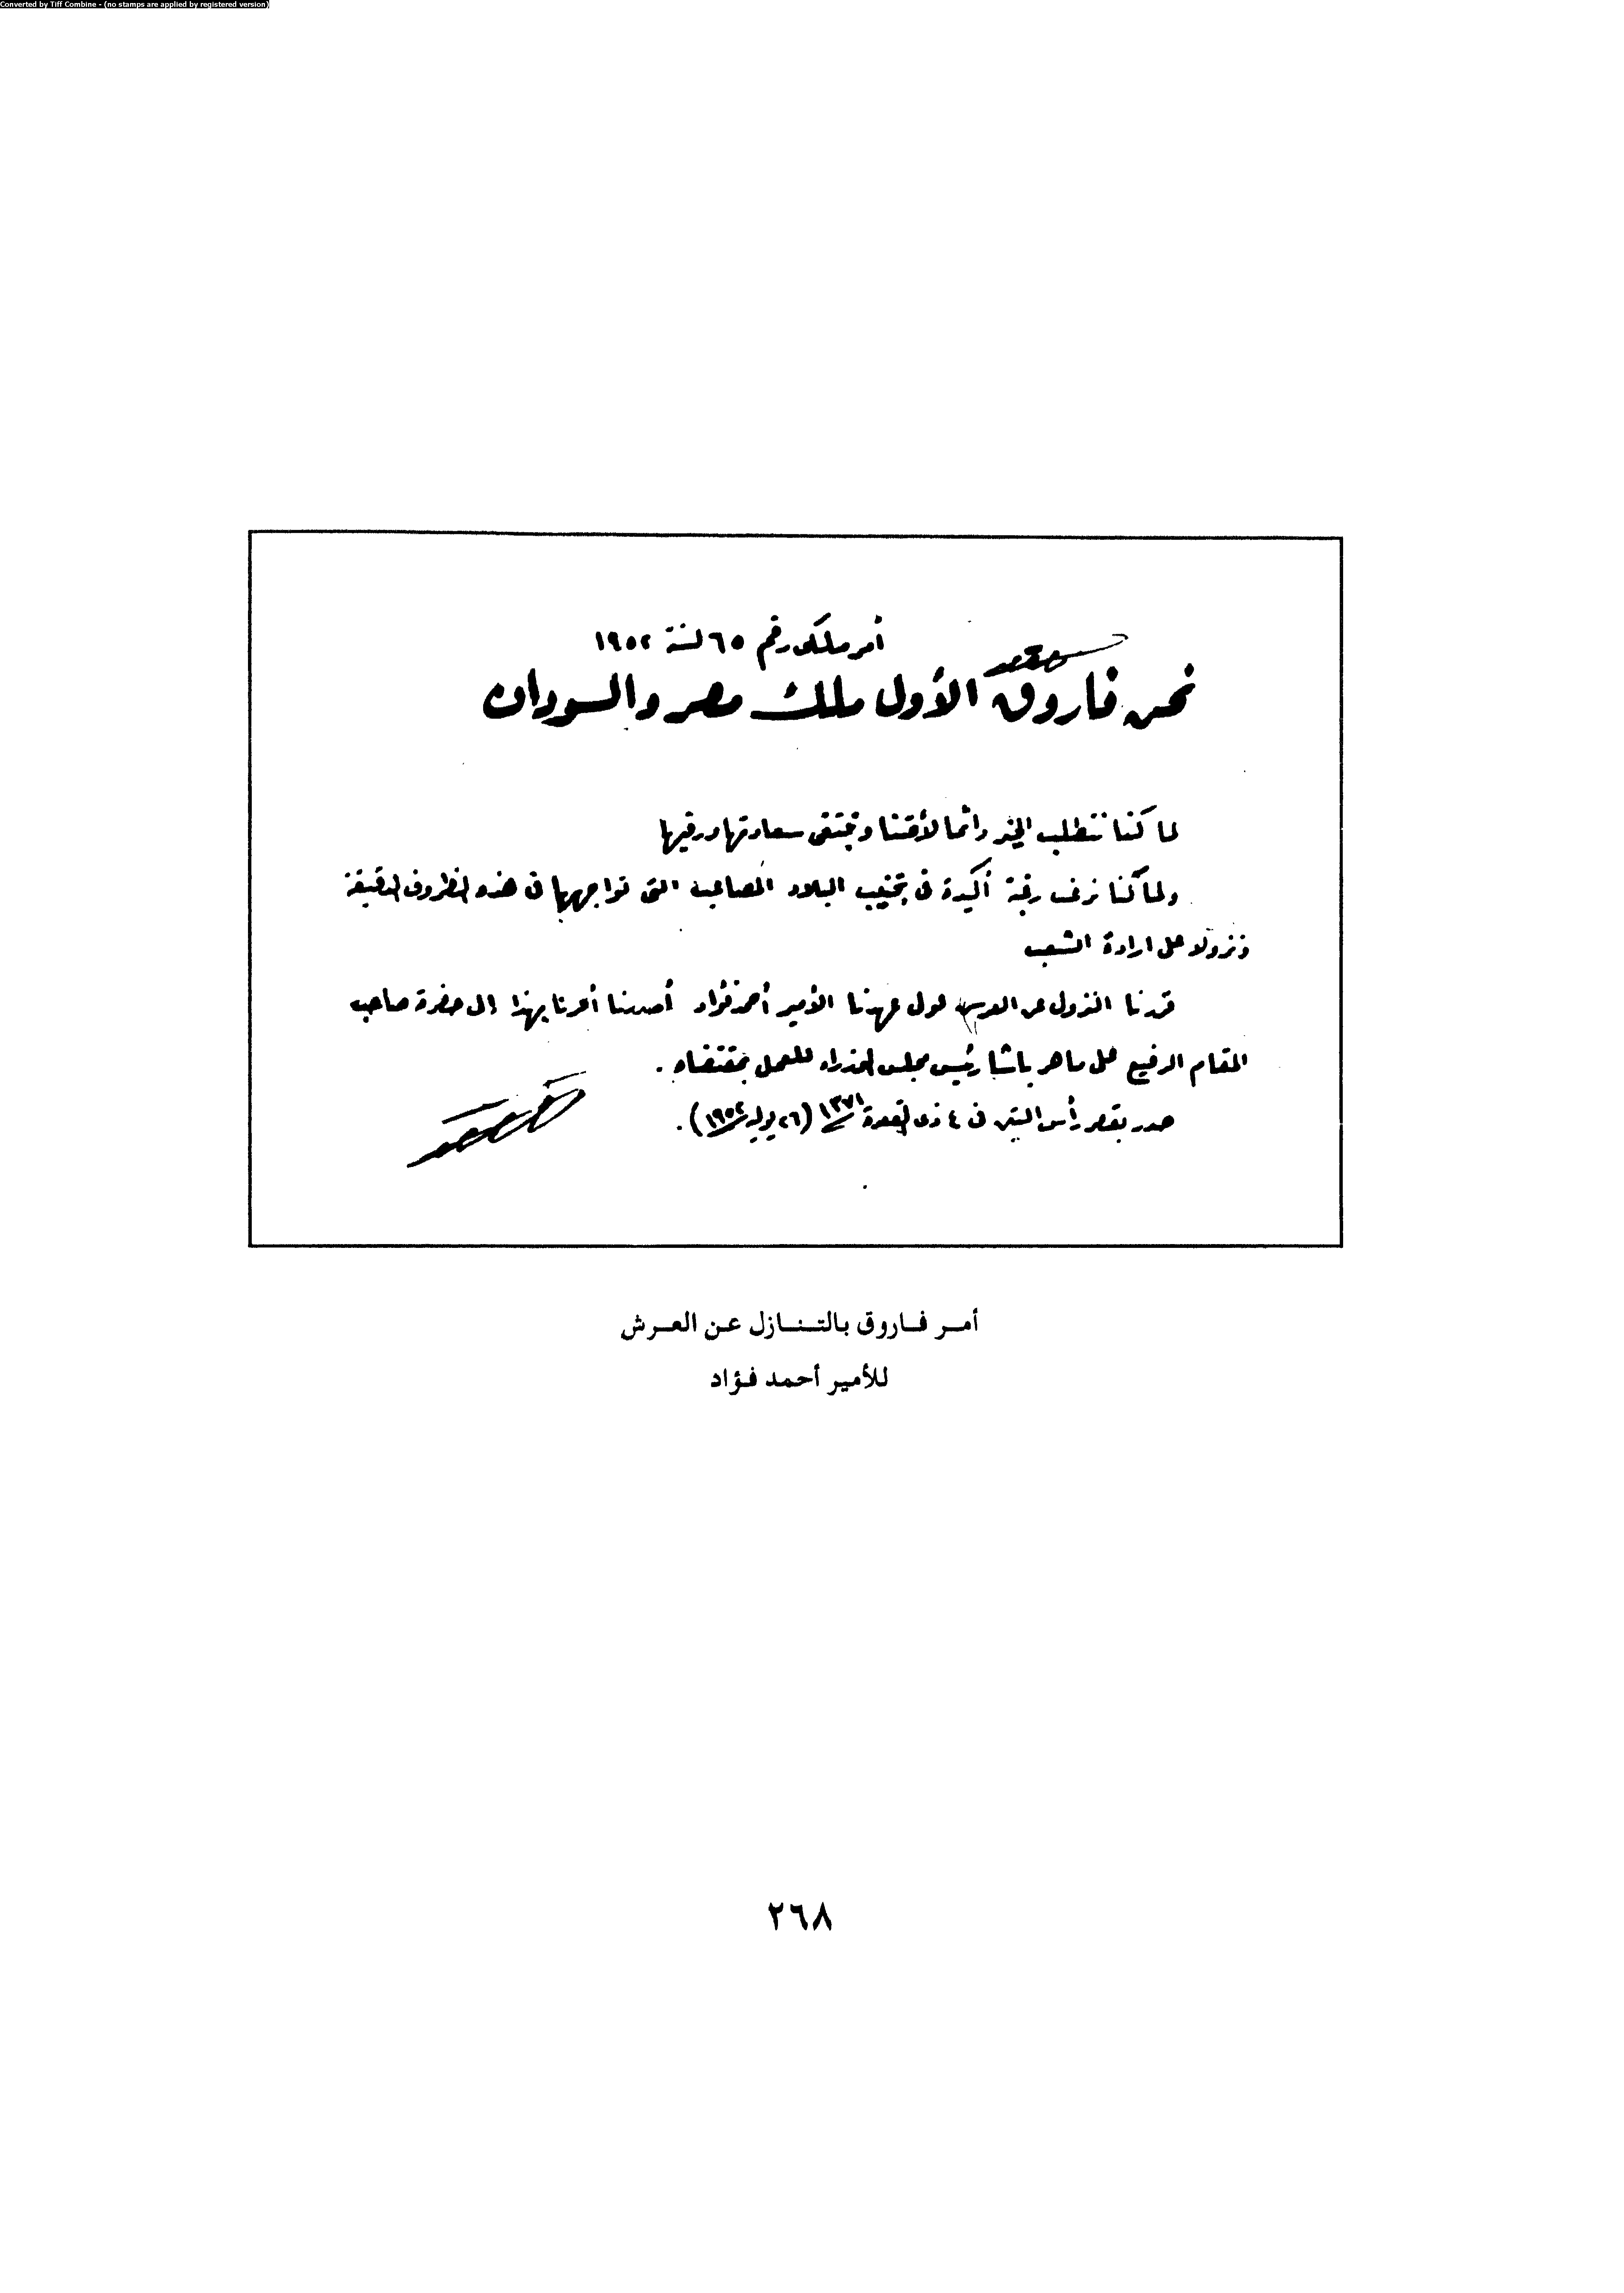 Converted by Tiff Combine - (no stamps are applied by registered version)
أمر ملكى رقم ٦٥ لسنة ١٩٥٢
نحن فاروق الأول ملك مصر والسودان
لما كنا نتطلب الخير دائما لأمتنا ونبتغى سعادتها ورقيها
ولما كنا نرغب رغبة أكيدة فى تجنيب البلاد المصاعب التى تواجهها فى هذه الظروف الدقيقة
ونزولا على ارادة الشعب
قررنا النزول عن العرش لولى عهدنا الأمير أحمد فؤاد وأصدرنا أمرنا بهذا إلى حضرة صاحب
المقام الرفيع على ماهر باشا رئيس مجلس الوزراء للعمل بمقتضاه .
صدر بقصر رأس التين فى ٤ ذى القعدة ١٣٧١ (٢٦ يوليه ١٩٥٢) .
أمر فاروق بالتنازل عن العرش
للأمير أحمد فؤاد
٢٦٨